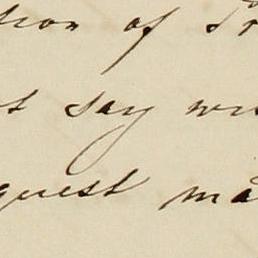 tion of Pr
t say wi
quest ma